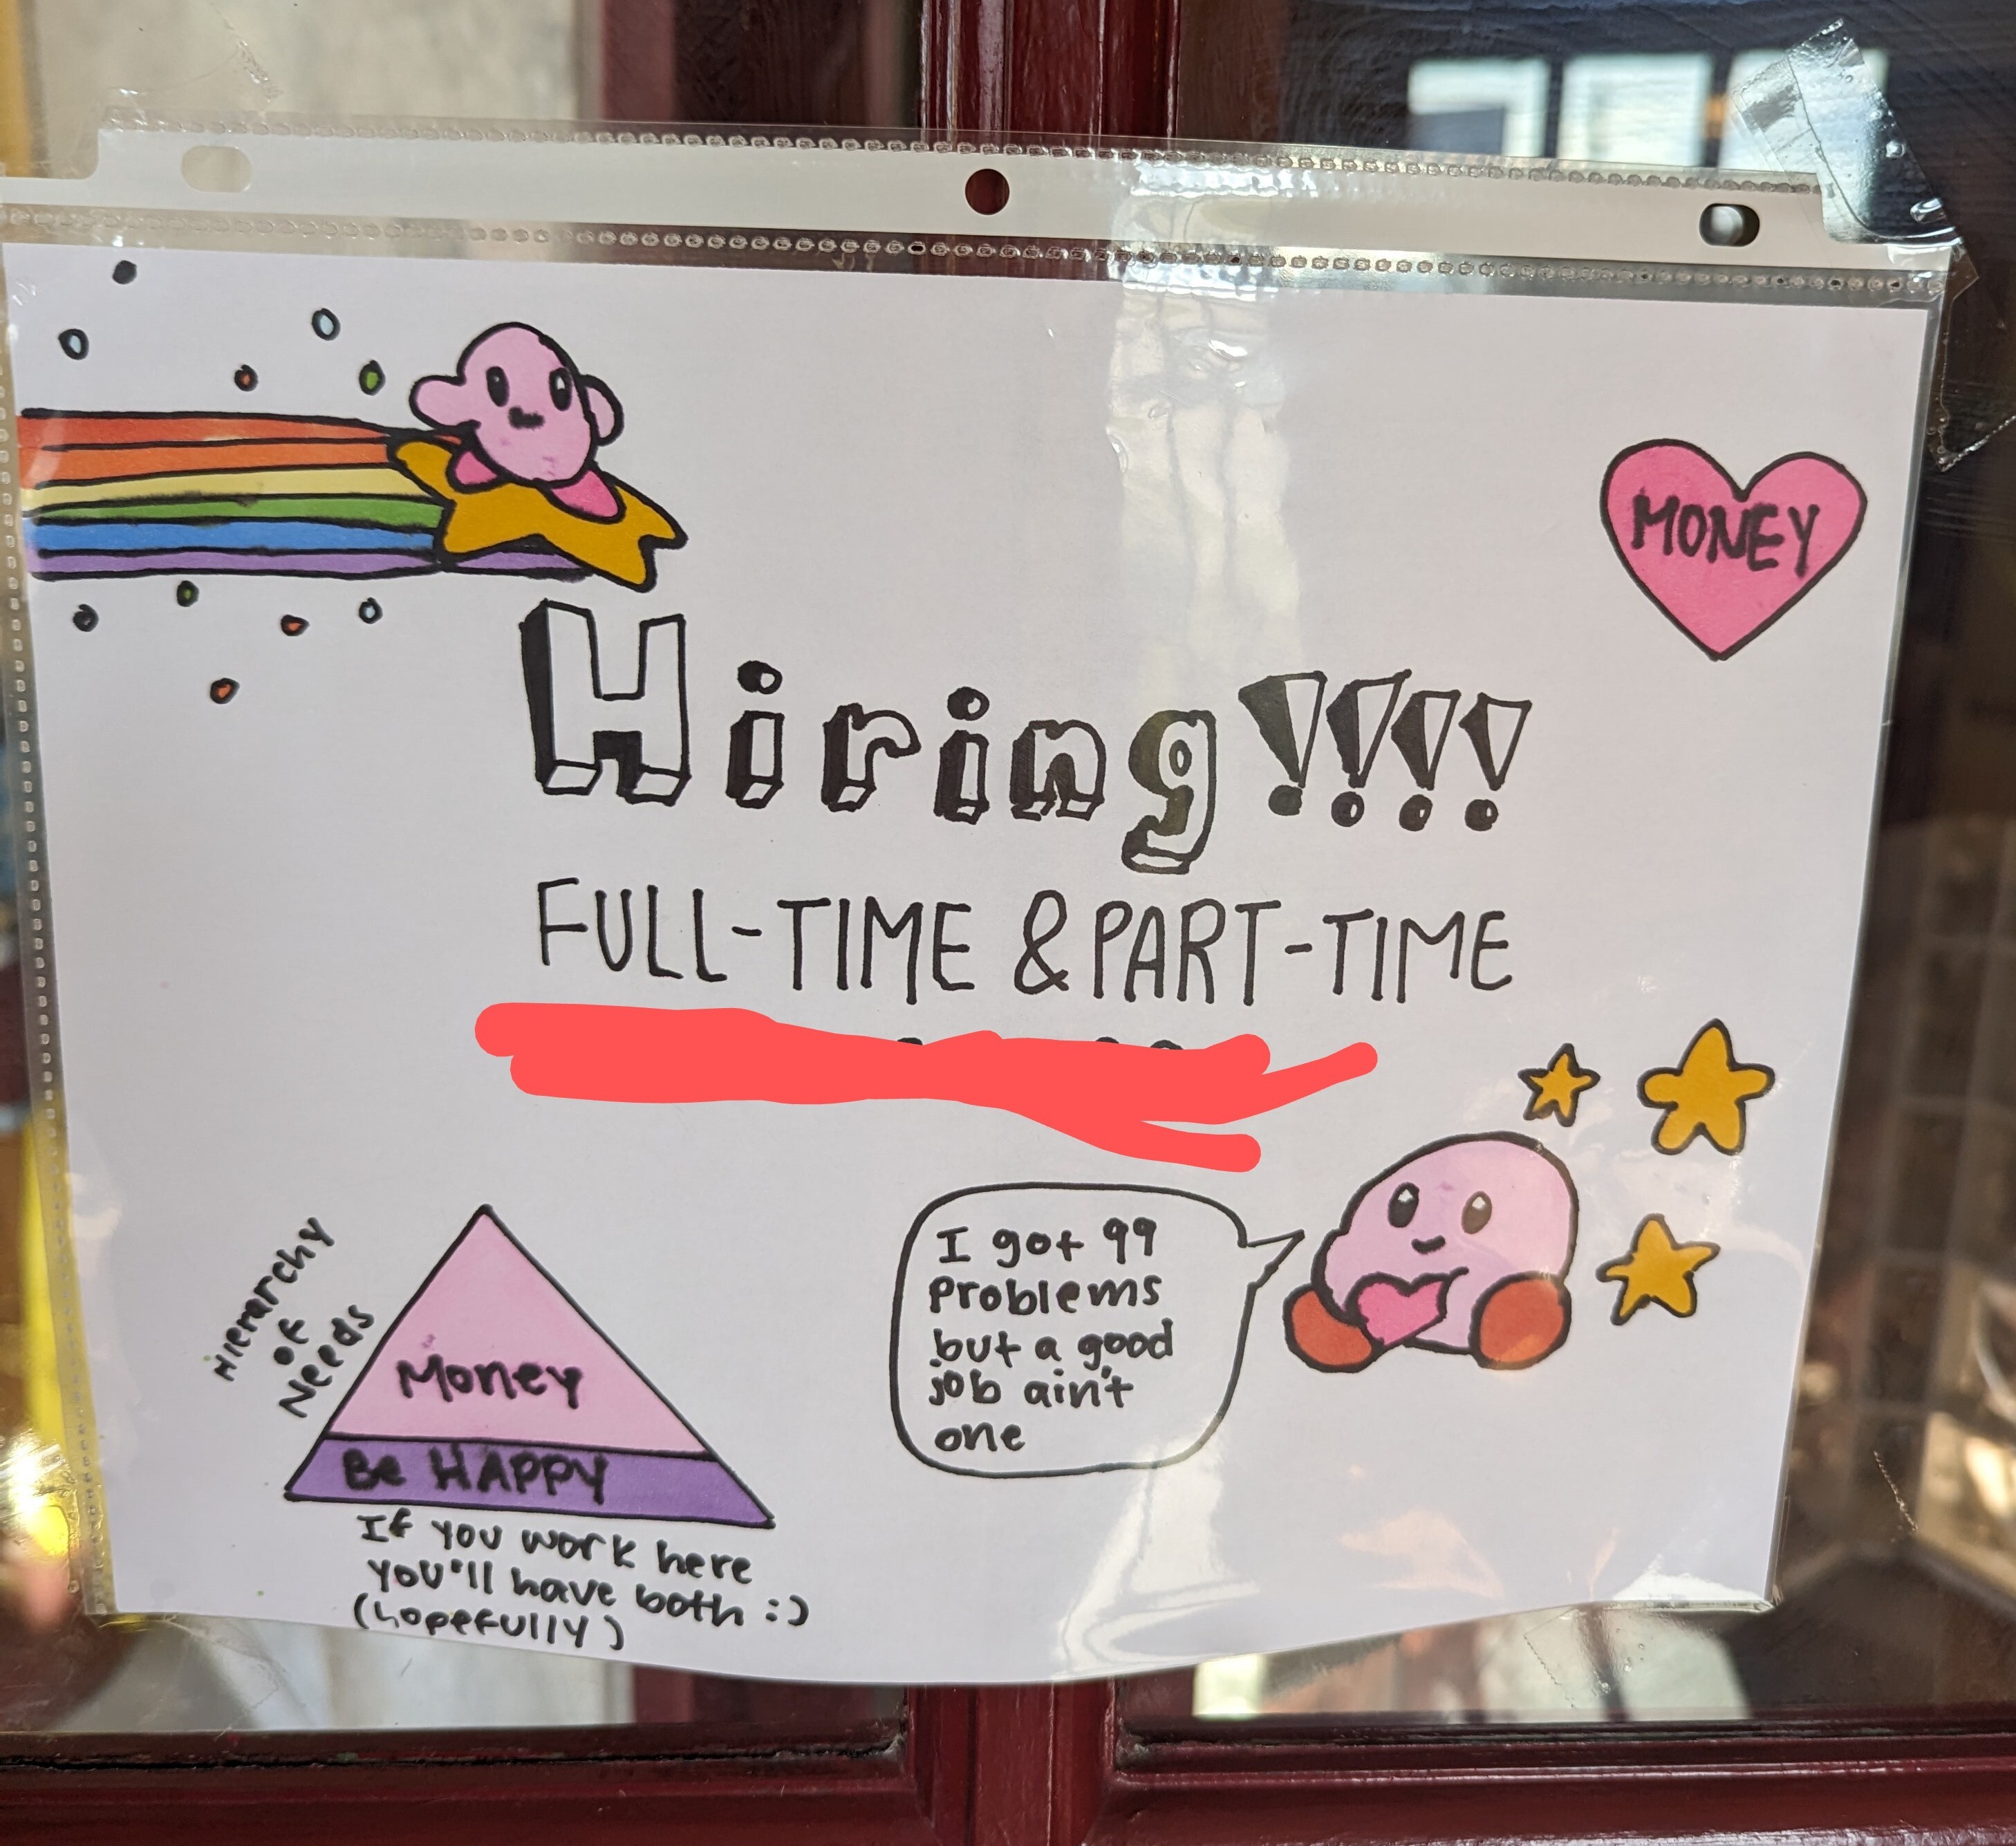 MONEY
Hiring!!!!
FULL-TIME & PART-TIME
Hierarchy
of
Needs
Money
Be HAPPY
If you work here
you'll have both :)
(hopefully)
I got 99
problems
but a good
job ain't
one